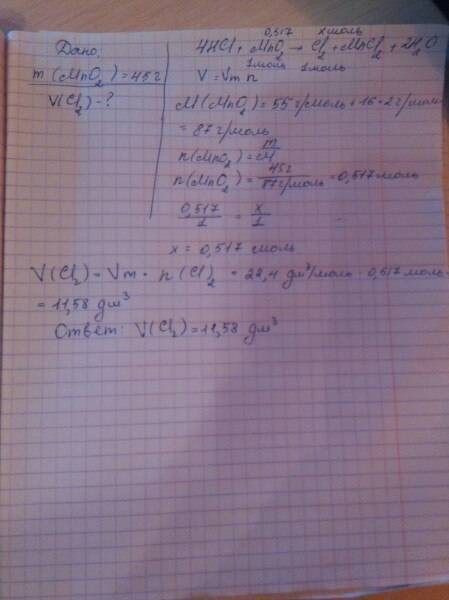 Дано:
m (MnO2) = 45 г
V(Cl2) - ?
0,517 x моль
4HCl + MnO2 → Cl2 + MnCl2 + 2H2O
1 моль 1 моль
V = Vm n
M(MnO2) = 55 г/моль + 16 · 2 г/моль =
= 87 г/моль
n(MnO2) = m/M
n(MnO2) = 45 г/87 г/моль = 0,517 моль
0,517/1 = x/1
x = 0,517 моль
V(Cl2) = Vm · n (Cl)2 = 22,4 дм3/моль · 0,517 моль =
= 11,58 дм3
Ответ: V(Cl2) = 11,58 дм3